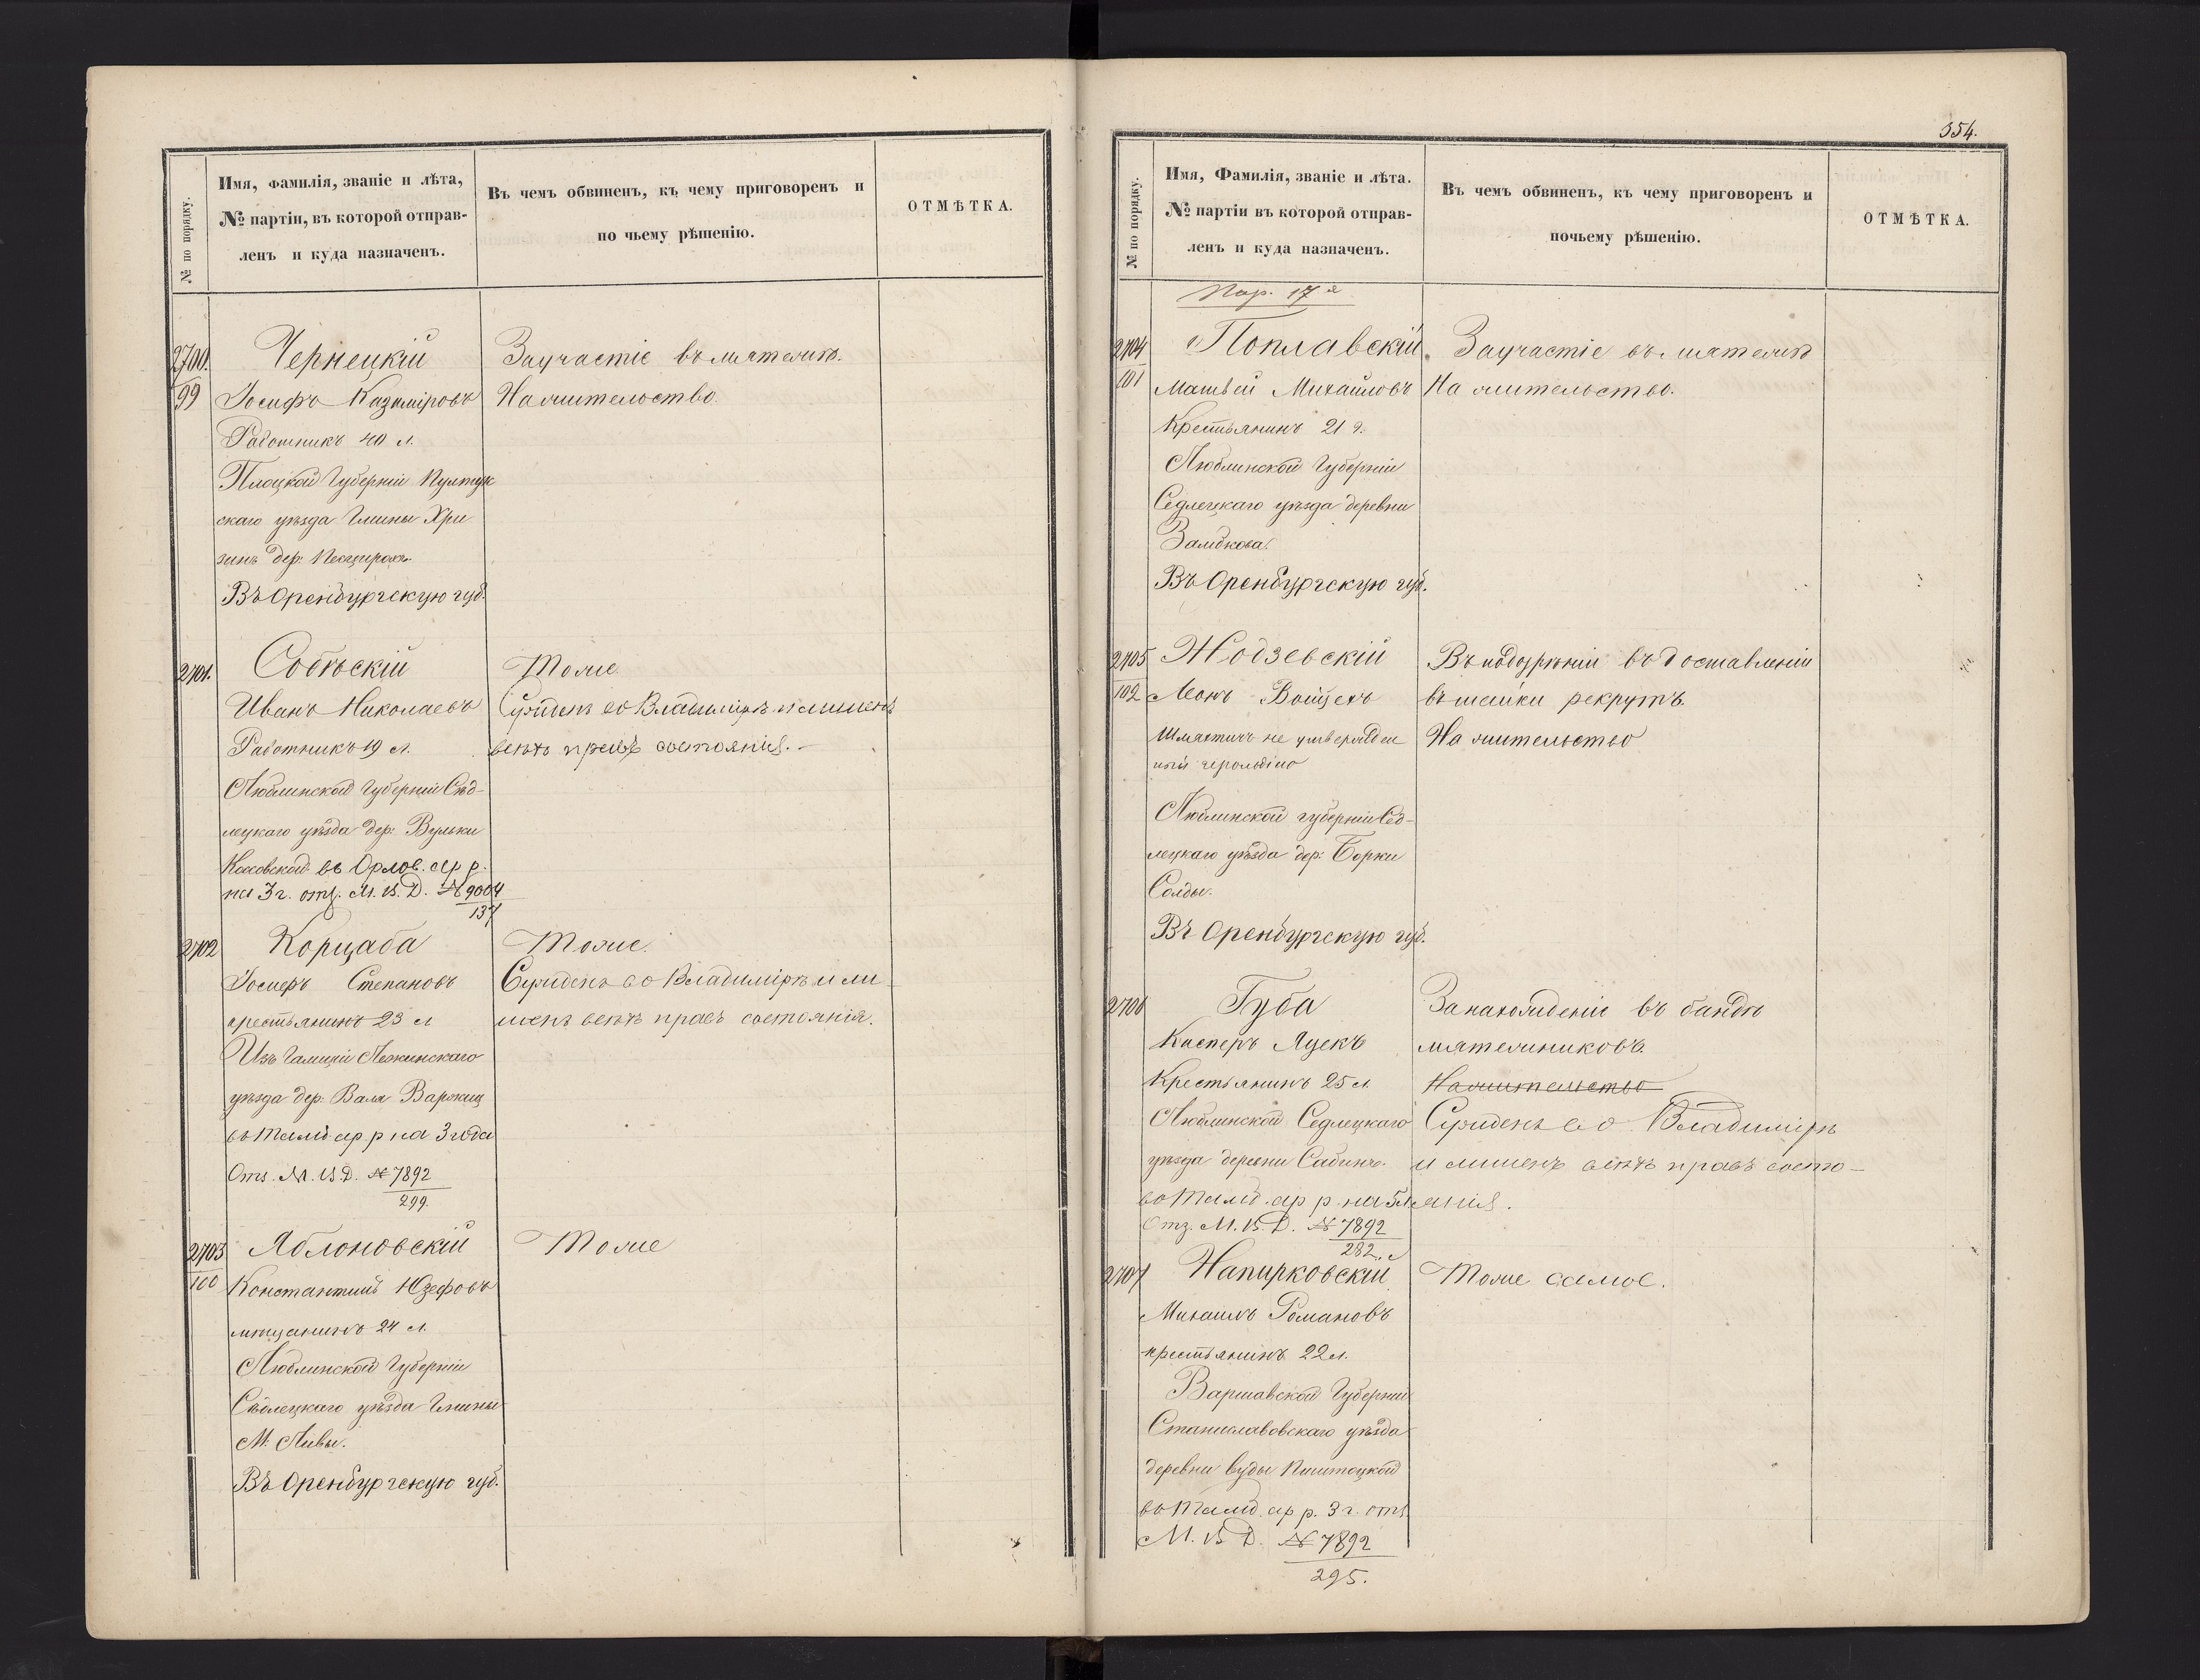 № по порядку.
Имя, фамилія, званіе и лѣта,
№ партіи, въ которой отправ-
ленъ и куда назначенъ.
Въ чемъ обвиненъ, къ чему приговоренъ и
по чьему рѣшенію.
ОТМѢТКА.
2700.
99
Чернецкій
Іосифъ Казиміровъ
Работникъ 40 л.
Плоцкой Губерніи Пултук
скаго уѣзда Гмины Хри
дер.
Въ Оренбургскую губ.
За участіе въ мятежѣ.
На жительство.
2701.
Собѣскій
Иванъ Николаевъ
Работникъ 19 л.
Люблинской Губерніи Сѣд-
лецкаго уѣзда дер. Вульки
Косовской въ Орлов. ар. р.
на 3 г. отз. М. В. Д. № 9004
137
Тоже
Сужденъ во Владимірѣ и лишенъ
всѣхъ правъ состоянія.
2702
Корцаба
Іосифъ Степановъ
крестьянинъ 23 л
Изъ Галиціи
уѣзда дер. Валя
въ Тамб. ар. р на 3 года
Отз. М. В. Д. № 7892
299.
Тоже.
Сужденъ во Владимірѣ и ли
шенъ всѣхъ правъ состоянія.
2703
100
Яблоновскій
Константинъ Юзефовъ
мѣщанинъ 24 л.
Люблинской Губерніи
Сѣдлецкаго уѣзда Гмины
М. Ливы.
Въ Оренбургскую губ.
Тоже
354.
№ по порядку.
Имя, Фамилія, званіе и лѣта.
№ партіи въ которой отправ-
ленъ и куда назначенъ.
Въ чемъ обвиненъ, къ чему приговоренъ и
почьему рѣшенію.
ОТМѢТКА.
Пар. 17я
2704
101
Поплавскій
Матвей Михайловъ
Крестьянинъ 21 г.
Люблинской Губерніи
Седлецкаго уѣзда деревни
Въ Оренбургскую губ.
За участіе въ мятежѣ
На жительство.
2705
102
Жодзевскій
Леонъ Войцехъ
Шляхтичъ не утвержден
ный герольдіею
Люблинской губерніи Сед-
лецкаго уѣзда дер. Борки
Солды.
Въ Оренбургскую губ.
Въ подозрѣніи въ доставленіи
въ шайки рекрутъ.
На жительство
2706
Губа
Касперъ Яцекъ
Крестьянинъ 25 л.
Люблинской Седлецкаго
уѣзда деревни
въ Тамб. ар р. на 5 л
Отз. М. В. Д. № 7892
282.
За нахожденіе въ бандѣ
мятежниковъ.
На жительство
Сужденъ во Владимірѣ
и лишенъ всѣхъ правъ состо-
янія.
2707
Напирковскій
Михаилъ Романовъ
крестьянинъ 22 л.
Варшавской Губерніи
Станиславовскаго уѣзда
деревни Буды
въ Тамб. ар р. 3 г. отз.
М. В. Д. № 7892
295.
Тоже самое.